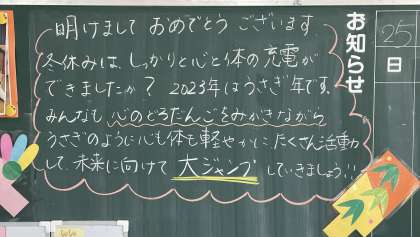 明けまして おめでとう ございます。
冬休みは、しっかりと心と体の充電が
できましたか？ 2023年はうさぎ年です。
みんなも 心のどろだんごをみがきながら
うさぎのように心も体も軽やかに たくさん活動
して、未来に向けて 大ジャンプ していきましょう!!
お知らせ
25
日